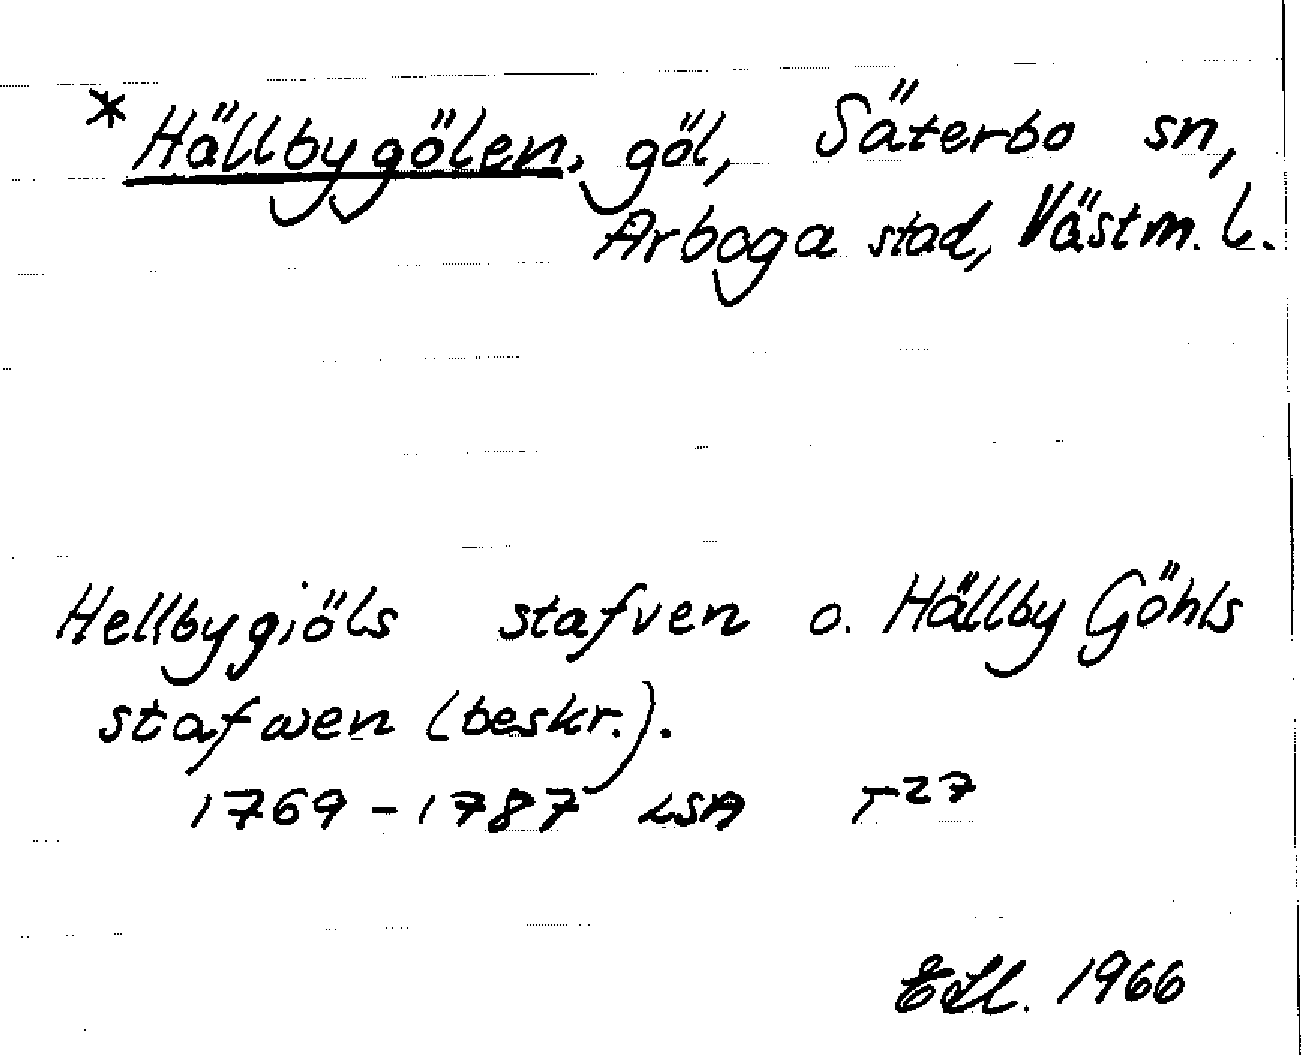 * Hällbygölen, göl, Säterbo sn,
Arboga stad, Västm. l.
Hellbygiöls stafven o. Hällby Göhls
stafwen (beskr.).
1769-1787 LSA T27
1966